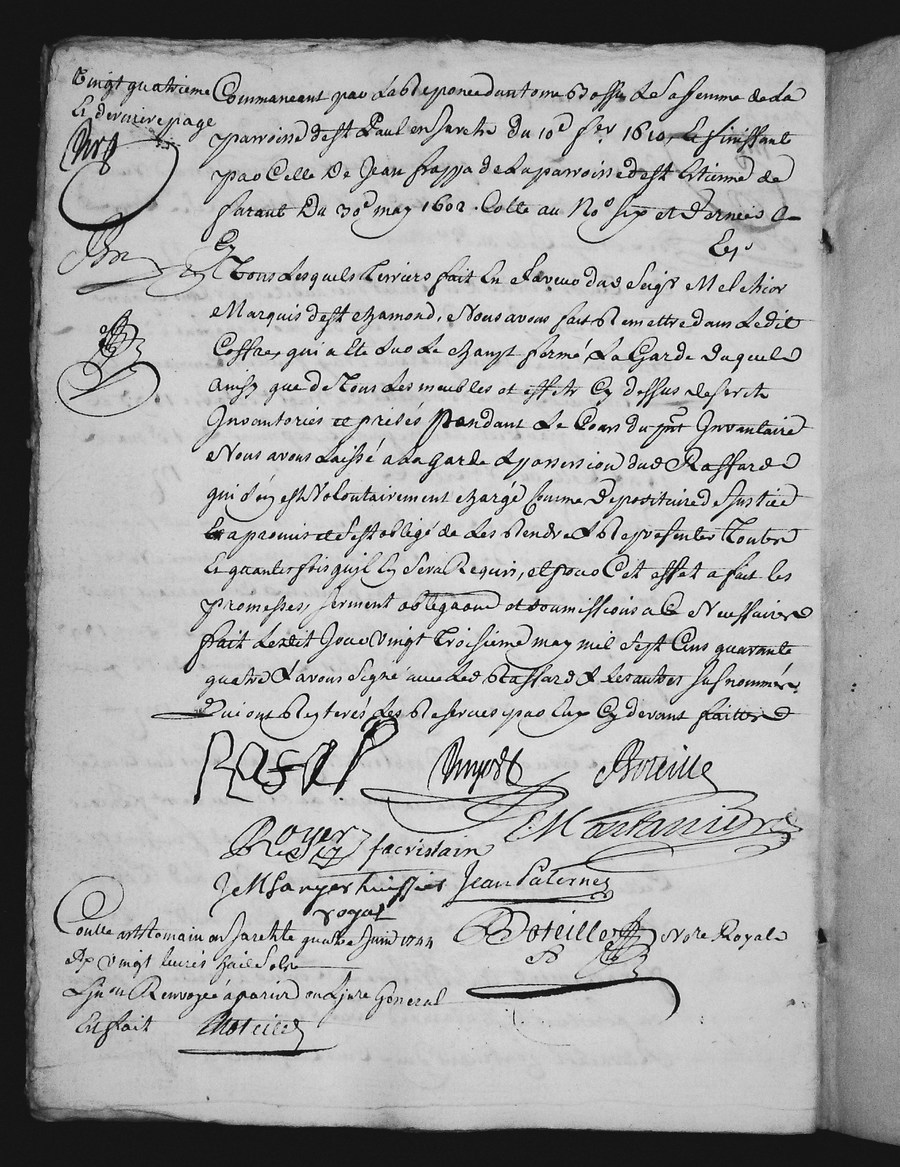 Vingt quatrieme
Et derniere page
Commanceant par La Reponce d'antoine Lesa femme de La
parroisse de st Paul en Jarretz du 10e fer 1610, Et finissant
par Celle De Jean frappa de La parroisse de st Etienne de
furant Du 30e may 1602. Cotte au No six et dernier
Tous Lesquels Terriers fait En faveur dud Seigr Melchior
Marquis de st chamond, Nous avons fait Remettre dans Ledit
Coffre, qui a Ete sur Le champt fermé, La Garde Duquel
ainsy que de Tous Les meubles et effets Cy dessus descrits
Inventoriés et prisés pendant Le Cours du pnt Inventaire
Nous avons Laissé a La Garde & possession dud Raffard
qui s'en est Volontairement chargé Comme Depositaire de Justice
Et a promis et s'est obligé de Les Rendre & Representer Toutes
Et quantes fois qu'il En Sera Requis, et pour Cet effet a fait les
promesses, serment obligaons et soumissions a Ce Necessaires
fait Lesdit Jour Vingt Troisieme may mil Sept Cens quarante
quatre & avons Signé avec Led Raffard & Les autres susnommés
Qui ont Reyterés Les Reserves par Eux Cy devant faittes
Boteille
Royer sacristain
huissier Jean Paterne
royal
Boteille Nore Royal
en Jarretz le quatre Juin 1744
Rx vingt
Renvoyée a General
Boteille